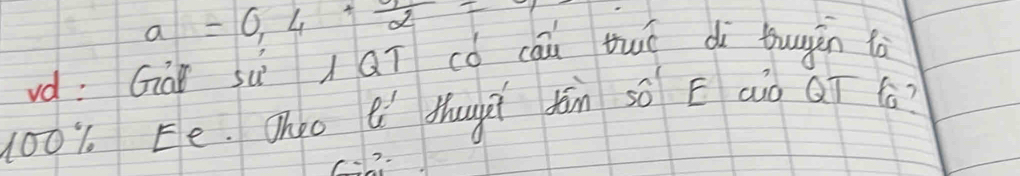 a = 0,4 + /2 =
vd: Giả sử 1 QT có cấu trúc di truyền là
100% Ee. Theo lí thuyết tần số E của QT là?
Giải